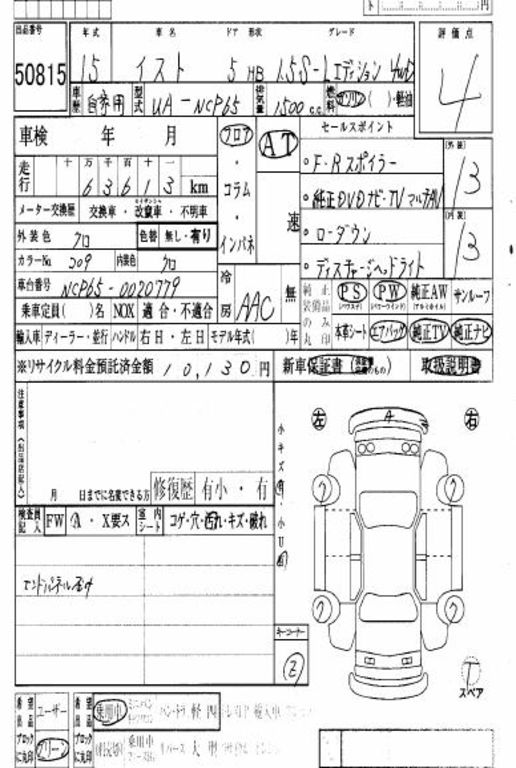 ト 円
出品番号 年式 車名 ドア 形状 グレード 評価点
50815 15 イスト 5 HB 1.5S-Lエディション 4WD 4
車歴 自家用 型式 UA-NCP65 排気量 1500 c.c. 燃料 ガソリン ( )・軽油
車検 年 月 フロア AT セールスポイント [外装]
走行 十 万 千 百 十 一 ・F・Rスポイラー 13
6 3 6 1 3 km コラム ・純正DVDナビ・TV マルチAV
メーター交換歴 交換車・改竄車・不明車 速 [内装]
外装色 クロ 色替 無し・有り インパネ ・ローダウン 13
カラーNo. 209 内装色 クロ ・ディスチャージヘッドライト
車台番号 NCP65-0020779 冷房 AAC 無 純正装備品のみ丸印 PS PW 純正AW サンルーフ
乗車定員( )名 NOX 適合・不適合 本革シート エアバッグ 純正TV 純正ナビ
輸入車 ディーラー・並行 ハンドル 右H・左H モデル年式( )年
※リサイクル料金預託済金額 10,130 円 新車保証書 取扱説明書
注意事項(出品店記入)
左 A 右
小キズ有・小U有
月 日までに名変できる方 修復歴 有小・有
検査員記入 FW A・X要ス 室内シート コゲ・穴・汚れ・キズ・破れ
エンドパネル歪み
キーコーナー
2
T
スペア
希望出品ブロックに丸印 ユーザー グリーン 希望出品ブロックに丸印 乗用車